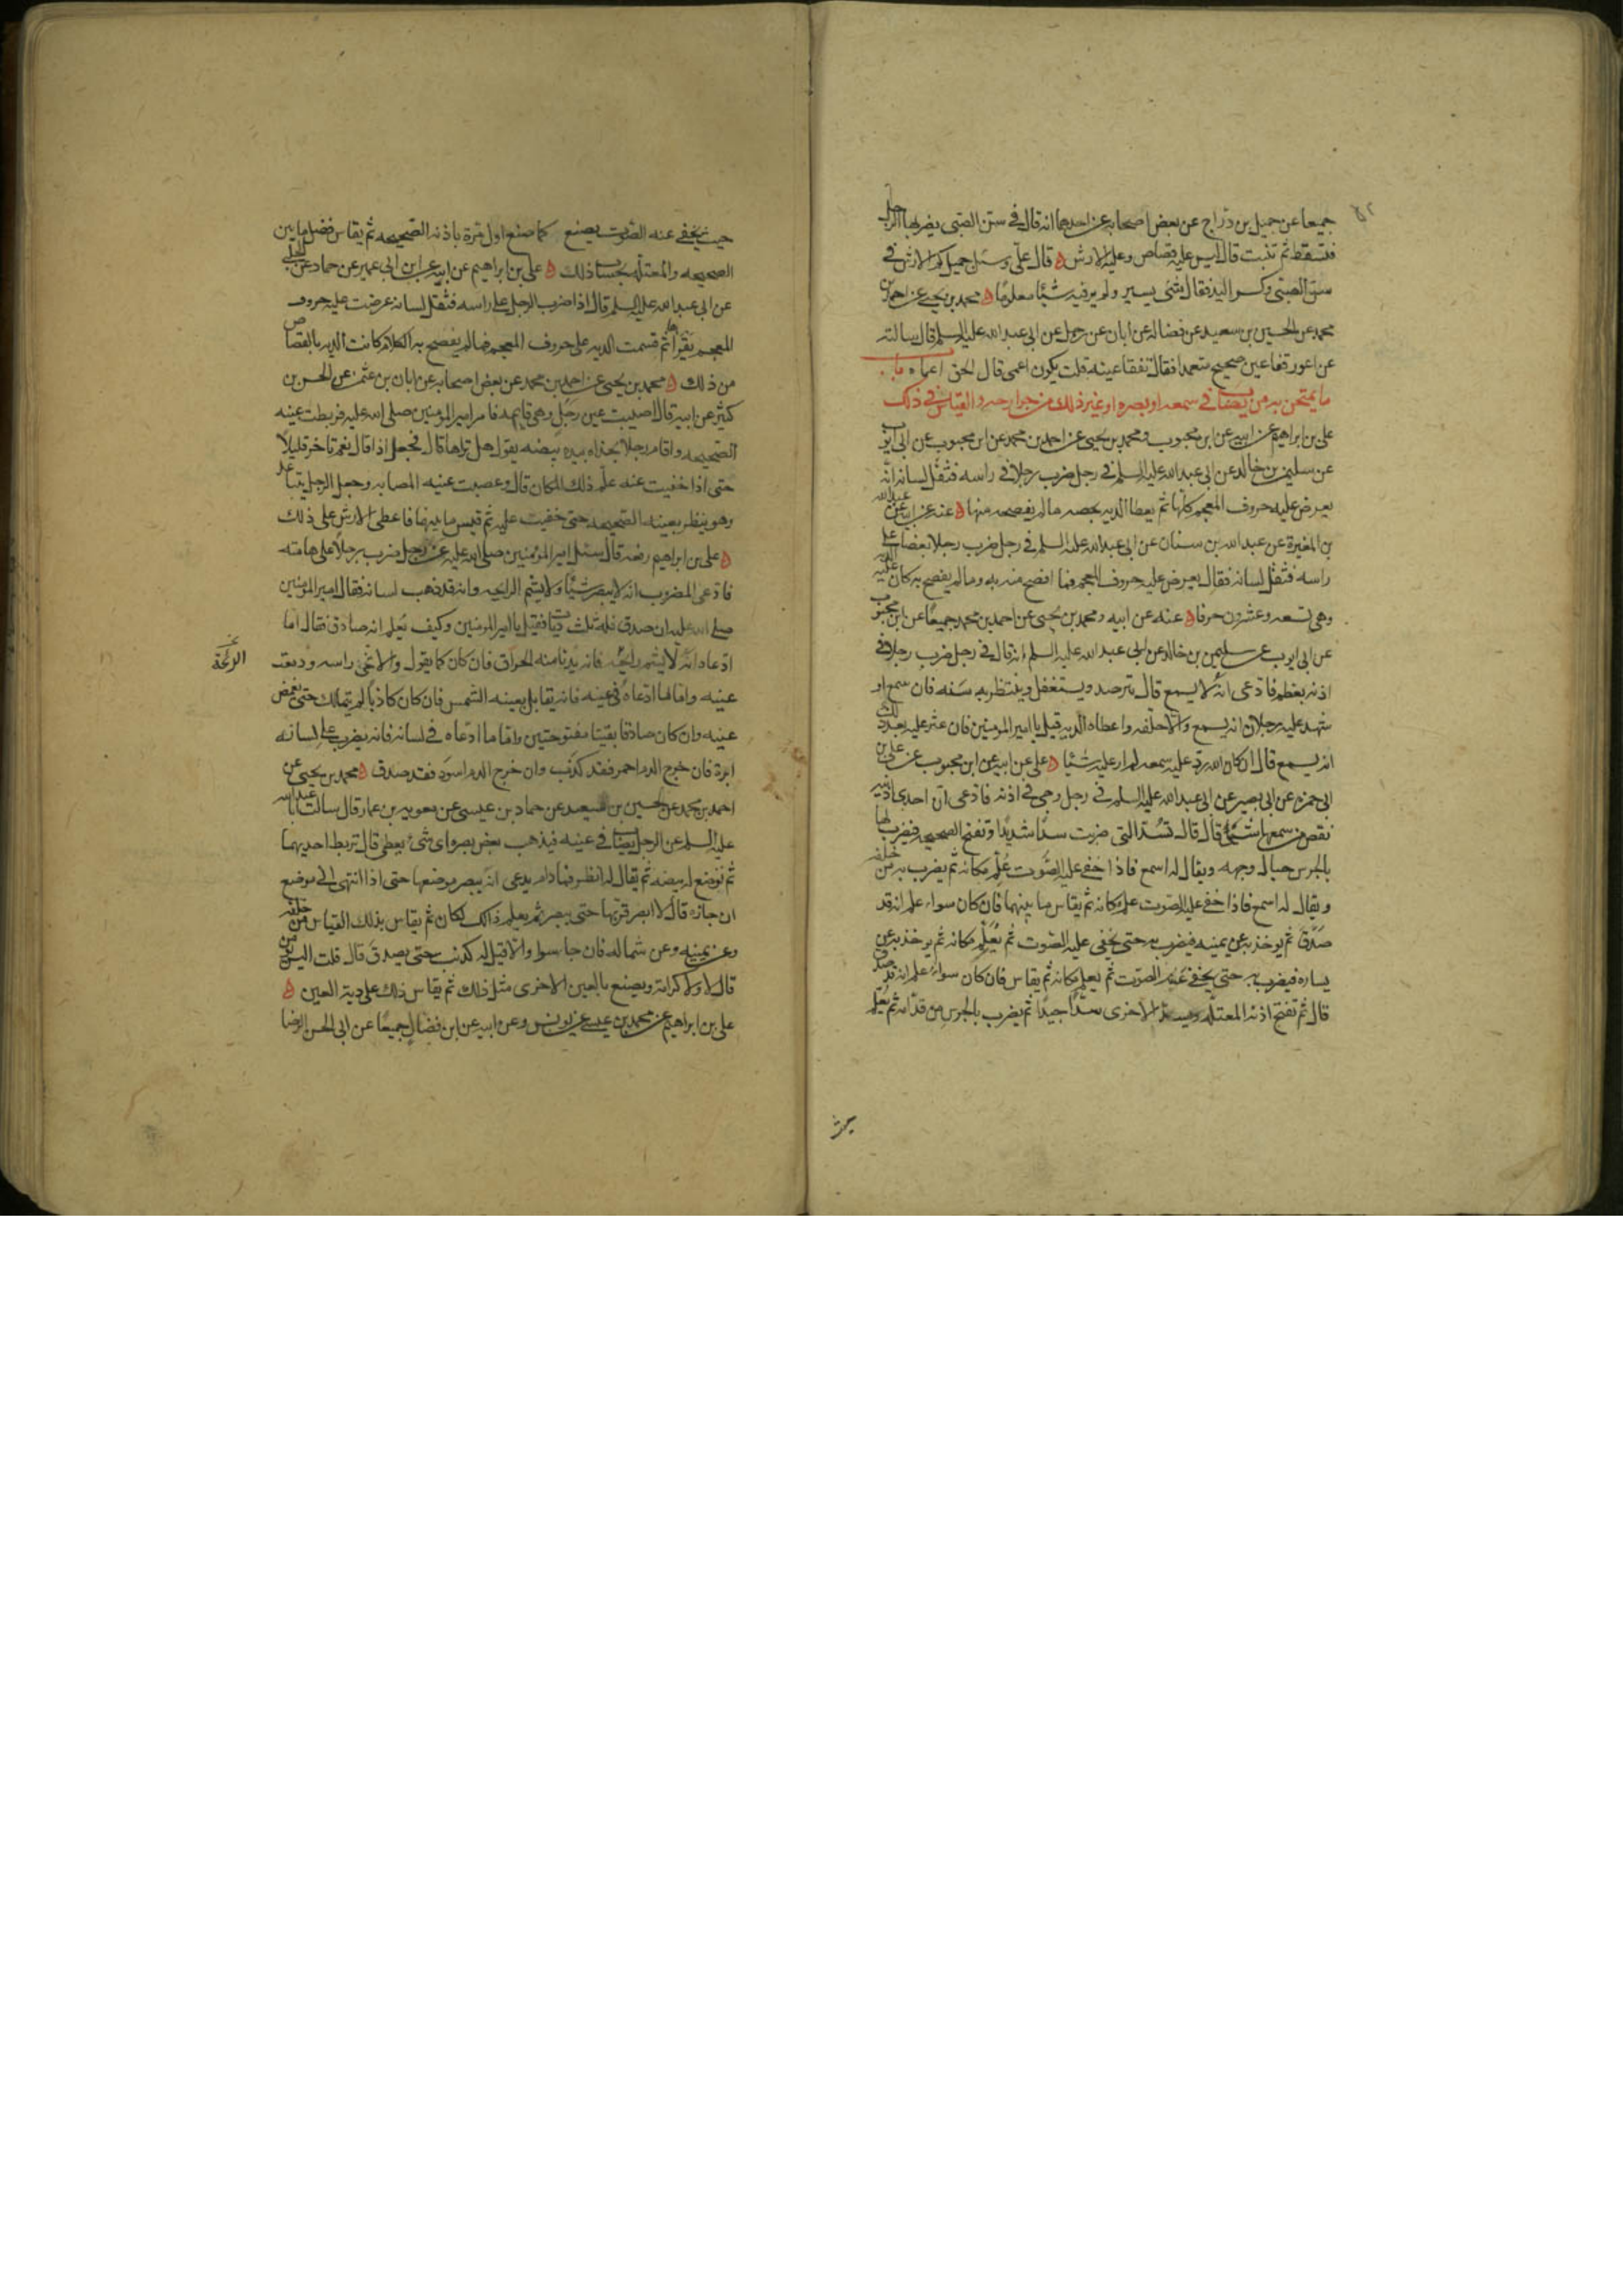 جميعا عن جميل بن دراج عن بعض اصحابه عن احدهما انه قال في سن الصبي يضربها الرجل
فتسقط ثم تنبت قال ليس عليه قصاص وعليه الارش ه قال علي وسئل جميل كم الارش في
سن الصبي وكسر اليد فقال شئ يسير ولم ير فيه شيئا معلوما ه محمد بن يحيى عن احمد بن
محمد عن الحسين بن سعيد عن فضالة عن ابان عن رجل عن ابي عبد الله عليه السلم قال سالته
عن اعور فقا عين صحيح متعمدا فقال تفقا عينه قلت يكون اعمى قال الحق اعماه باب
ما يمتحن به من يصاب في سمعه او بصره او غير ذلك من جوارحه والقياس في ذلك
علي بن ابراهيم عن ابيه عن ابن محبوب و محمد بن يحيى عن احمد بن محمد عن ابن محبوب عن ابي ايوب
عن سليمن بن خالد عن ابي عبد الله عليه السلم في رجل ضرب رجلا في راسه فثقل لسانه انه
يعرض عليه حروف المعجم كلها ثم يعطا الديه بحصه ما لم يفصحه منها ه عنه عن ابيه عن عبد الله
بن المغيرة عن عبد الله بن سنان عن ابي عبد الله عليه السلم في رجل ضرب رجلا بعصا على
راسه فثقل لسانه فقال يعرض عليه حروف المعجم فما افصح منه به وما لم يفصح به كان عليه الدية
وهي تسعه وعشرون حرفا ه عنه عن ابيه ومحمد بن يحيى عن احمد بن محمد جميعا عن ابن محبوب
عن ابي ايوب عن سليمن بن خالد عن ابي عبد الله عليه السلم انه قال في رجل ضرب رجلا في
اذنه بعظم فادعى انه لا يسمع قال يترصد ويستغفل وينتظر به سنه فان سمع او
شهد عليه رجلان انه يسمع والا حلفه واعطاه الديه قيل يا امير المومنين فان عثر عليه بعد ذلك
انه يسمع قال ان كان الله رد عليه سمعه لم ار عليه شيئا ه علي عن ابيه عن ابن محبوب عن علي بن
ابي حمزه عن ابي بصير عن ابي عبد الله عليه السلم في رجل وجئ في اذنه فادعى ان احدى اذنيه
نقص من سمعها شئ قال قال تسد التي ضربت سدا شديدا وتفتح الصحيحه فيضرب لها
بالجرس حيال وجهه ويقال له اسمع فاذا خفى عليه الصوت علم مكانه ثم يضرب به من خلفه
ويقال له اسمع فاذا خفى عليه الصوت علم مكانه ثم يقاس ما بينهما فان كان سواء علم انه قد
صدق ثم يوخذ به عن يمينه فيضرب به حتى يخفى عليه الصوت ثم يعلم مكانه ثم يوخذ به عن
يساره فيضرب به حتى يخفى عنه الصوت ثم يعلم مكانه ثم يقاس فان كان سواء علم انه قد صدق
قال ثم تفتح اذنه المعتله وتسد الاخرى سدا جيدا ثم يضرب بالجرس من قدامه ثم يعلم
حيث يخفى عنه الصوت يصنع كما صنع اول مرة باذنه الصحيحه ثم يقاس فضل ما بين
الصحيحه والمعتله بحساب ذلك ه علي بن ابراهيم عن ابيه عن ابن ابي عمير عن حماد عن الحلبي
عن ابي عبد الله عليه السلم قال اذا ضرب الرجل على راسه فثقل لسانه عرضت عليه حروف
المعجم يقرأها ثم قسمت الديه على حروف المعجم فما لم يفصح به الكلام كانت الديه بالقصاص
من ذلك ه محمد بن يحيى عن احمد بن محمد عن بعض اصحابه عن ابان بن عثمن عن الحسن بن
كثير عن ابيه قال اصيبت عين رجل وهي قايمه فامر امير المومنين صلى الله عليه فربطت عينه
الصحيحه واقام رجلا بحذاه بيده بيضه يقول هل تراها قال فجعل اذا قال نعم تاخر قليلا
حتى اذا خفيت عنه علم ذلك المكان قال وعصبت عنيه المصابه وجعل الرجل يتباعد
وهو ينظر بعينه الصحيحه حتى خفيت عليه ثم قيس ما بينهما فاعطى الارش على ذلك
ه علي بن ابراهيم رفعه قال سئل امير المؤمنين صلى الله عليه عن رجل ضرب رجلا على هامته
فادعى المضروب انه لا يبصر شيئا ولا يشم الرايحه وانه قد ذهب لسانه فقال امير المومنين
صلى الله عليه ان صدق فله ثلث ديات فقيل يا امير المومنين وكيف يعلم انه صادق فقال اما
ادعاه انه لا يشم رايحه فانه يدنا منه الحراق فان كان كما يقول والا نحى راسه ودمعت
الرائحة
عينيه واما ما ادعاه في عينه فانه يقابل بعينه الشمس فان كان كاذبا لم يتمالك حتى يغمض
عينيه وان كان صادقا بقيتا مفتوحتين واما ما ادعاه في لسانه فانه يضرب على لسانه
ابرة فان خرج الدم احمر فقد كذب وان خرج الدم اسود فقد صدق ه محمد بن يحيى عن
احمد بن محمد عن الحسين بن سعيد عن حماد بن عيسى عن معويه بن عمار قال سالت ابا عبد الله
عليه السلم عن الرجل يصاب في عينيه فيذهب بعض بصره اى شئ يعطى قال تربط احديهما
ثم توضع له بيضه ثم يقال له انظر فما دام يدعي انه يبصر موضعها حتى اذا انتهى الى موضع
ان جازه قال لا ابصر قربها حتى يبصر ثم يعلم ذلك المكان ثم يقاس بذلك القياس من خلفه
وعن يمينه وعن شماله فان جا سوا والا قيل له كذبت حتى يصدق قال قلت اليس يومن
قال لا ولا كرامة ويصنع بالعين الاخرى مثل ذلك ثم يقاس ذلك على دية العين ه
علي بن ابراهيم عن محمد بن عيسى عن يونس وعن ابيه عن ابن فضال جميعا عن ابي الحسن الرضا